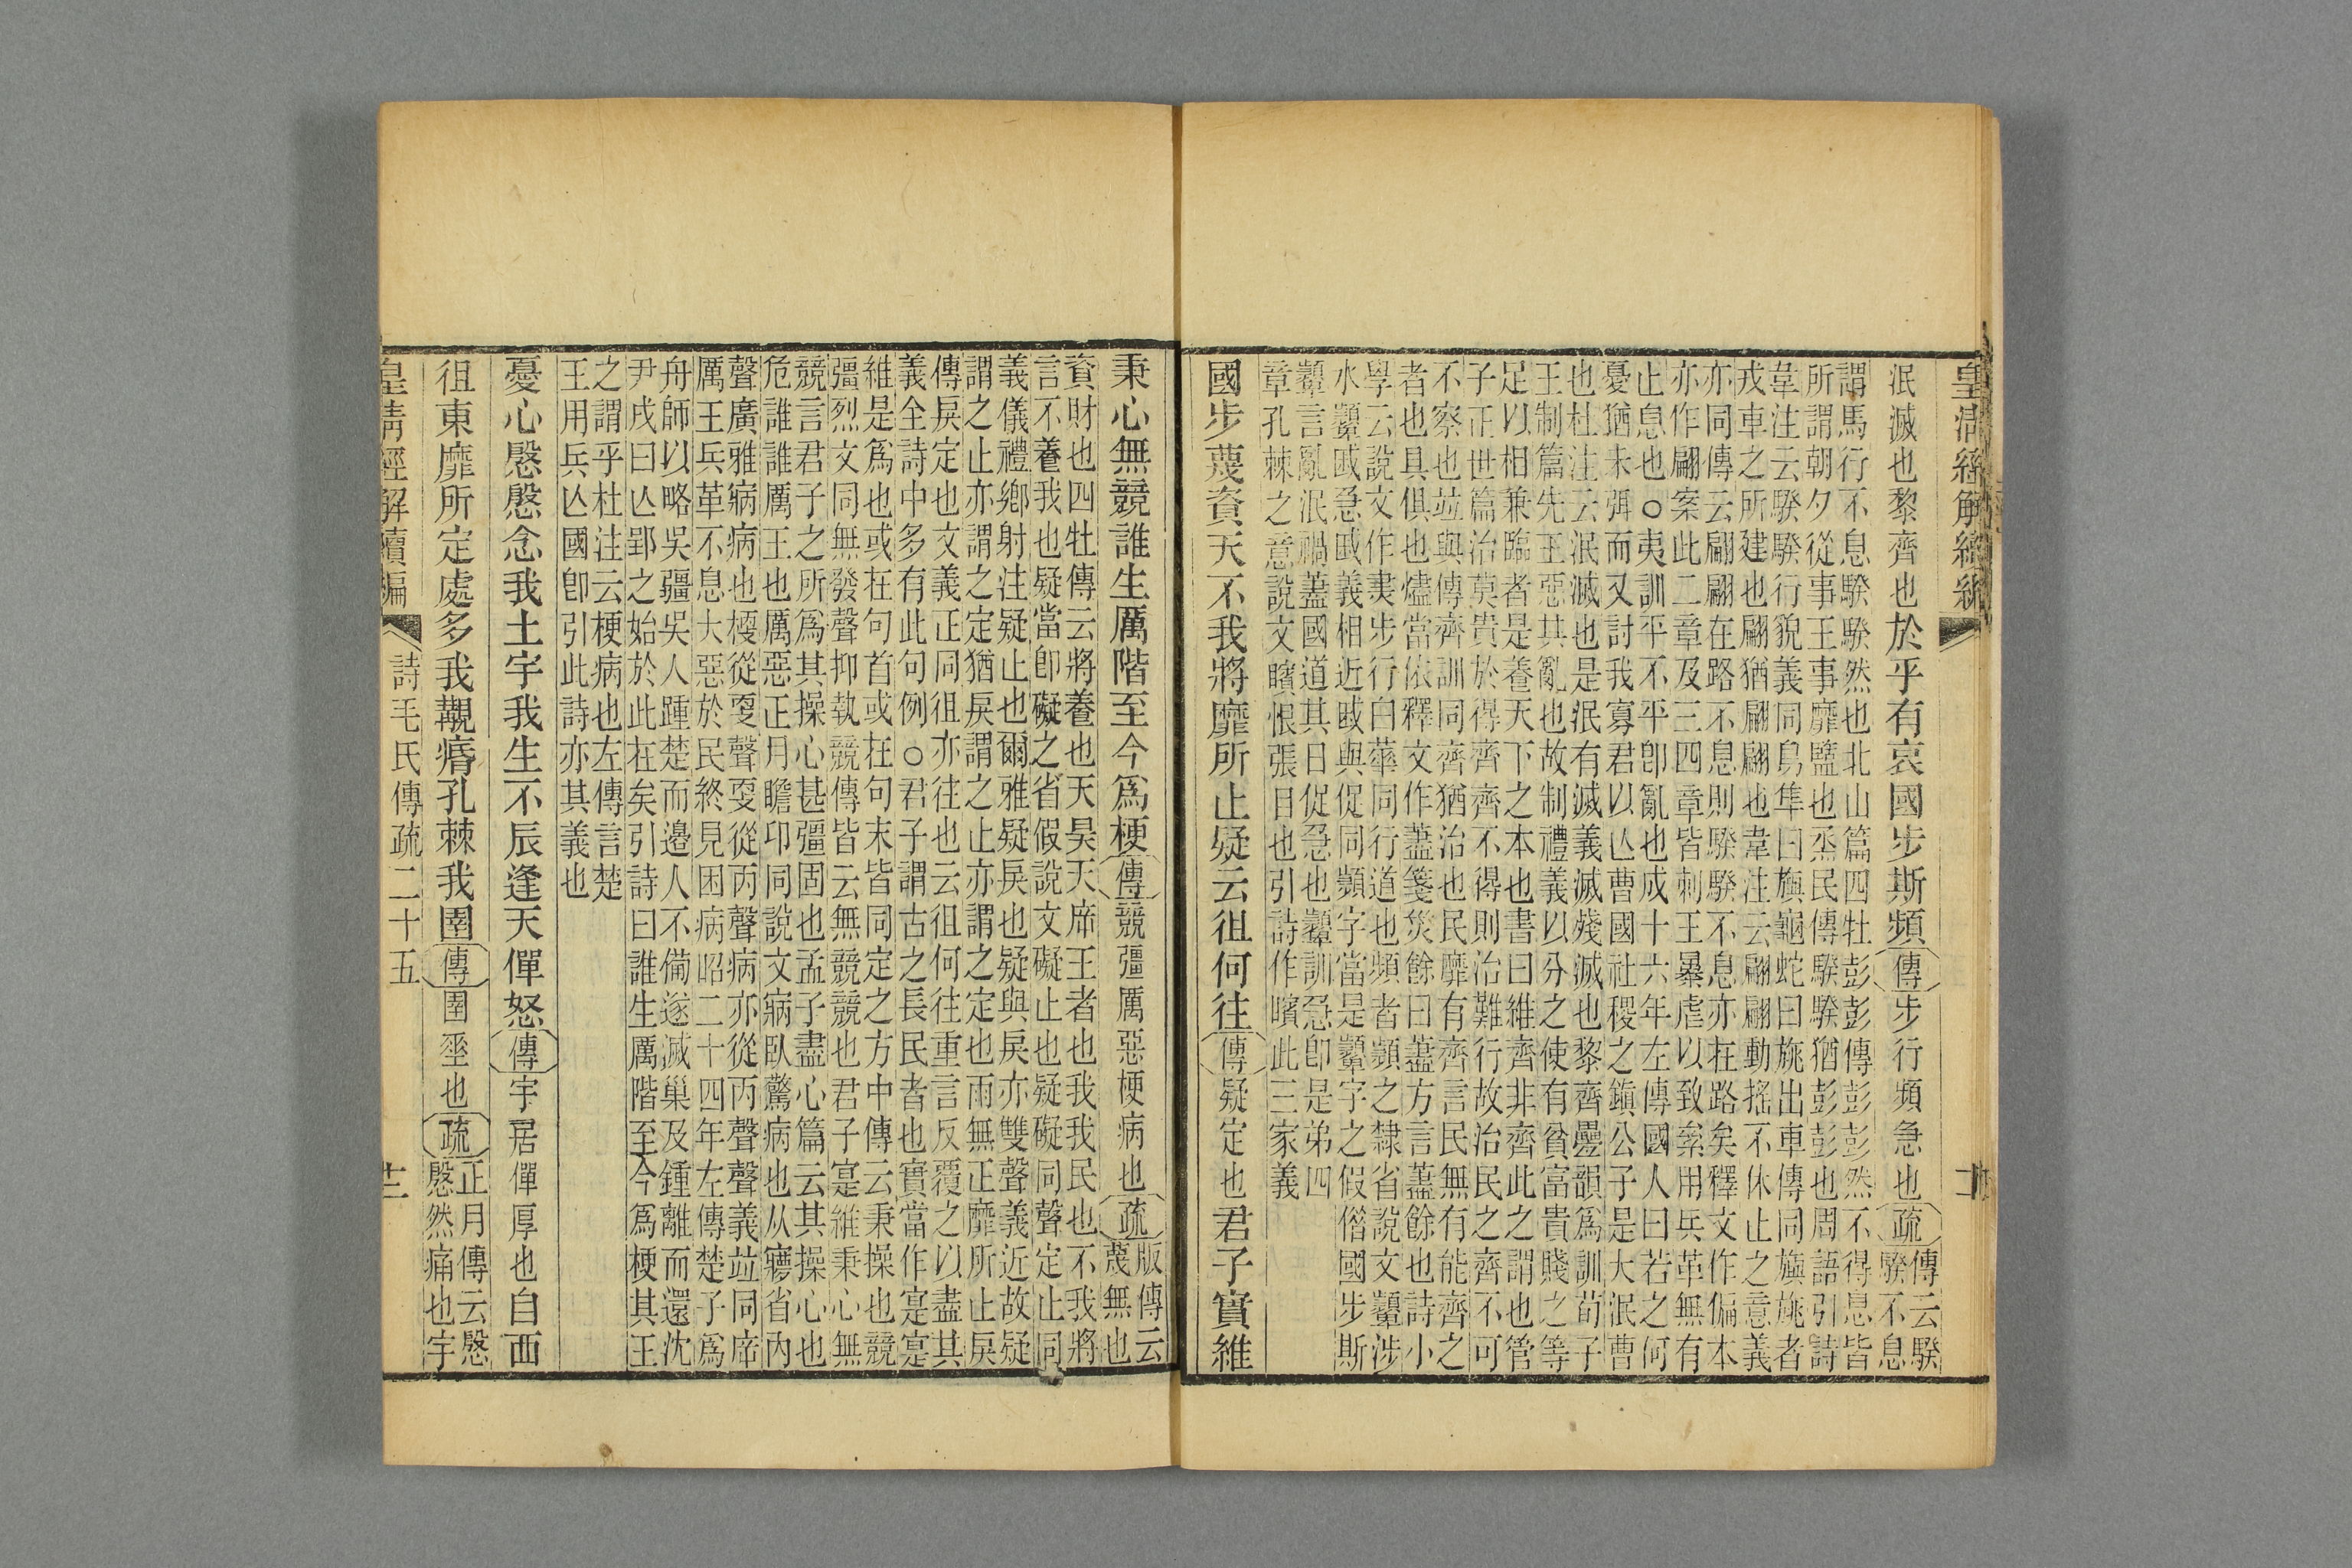 泯滅也黎齊也於乎有哀國步斯頻傳步行頻急也疏傳云騤
騤不息
謂馬行不息騤騤然也北山篇四牡彭彭傳彭彭然不得息皆
所謂朝夕從事王事靡盬也烝民傳騤騤猶彭彭也周語引詩
韋注云騤騤行貌義同鳥隼曰旟龜蛇曰旐出車傳同旟旐者
戎車之所建也翩猶翩翩也韋注云翩翩動搖不休止之意義
亦同傳云翩翩在路不息則騤騤不息亦在路矣釋文作偏本
亦作翩案此二章及三四章皆刺王暴虐以致亟用兵革無有
止息也○夷訓平不平卽亂也成十六年左傳國人曰若之何
憂猶未弭而又討我寡君以亾曹國社稷之鎭公子是大泯曹
也杜注云泯滅也是泯有滅義滅殘滅也黎齊疊韻爲訓荀子
王制篇先王惡其亂也故制禮義以分之使有貧富貴賤之等
足以相兼臨者是養天下之本也書曰維齊非齊此之謂也管
子正世篇治莫貴於得齊齊不得則治難行故治民之齊不可
不察也竝與傳齊訓同齊猶治也民靡有齊言民無有能齊之
者也具俱也燼當依釋文作藎箋災餘曰藎方言藎餘也詩小
學云說文作㶳步行白華同行道也頻者顰之隸省說文顰涉
水顰戚急戚義相近戚與促同頻字當是顰字之假借國步斯
顰言亂泯禍蓋國道其日促急也顰訓急卽是弟四
章孔棘之意說文矉恨張目也引詩作矉此三家義
國步蔑資天不我將靡所止疑云徂何往傳疑定也君子實維
秉心無競誰生厲階至今爲梗傳競彊厲惡梗病也疏版傳云
蔑無也
資財也四牡傳云將養也天昊天席王者也我我民也不我將
言不養我也疑當卽礙之省假說文礙止也疑礙同聲定止同
義儀禮鄉射注疑止也爾雅疑戾也疑與戾亦雙聲義近故疑
謂之止亦謂之定猶戾謂之止亦謂之定也雨無正靡所止戾
傳戾定也文義正同徂亦往也云徂何往重言反覆之以盡其
義全詩中多有此句例○君子謂古之長民者也實當作寔寔
維是爲也或在句首或在句末皆同定之方中傳云秉操也競
彊烈文同無發聲抑執競傳皆云無競競也君子寔維秉心無
競言君子之所爲其操心甚彊固也孟子盡心篇云其操心也
危誰誰厲王也厲惡正月瞻卬同說文㾕臥驚病也从㝱省丙
聲廣雅㾕病也梗從㪅聲㪅從丙聲病亦從丙聲聲義竝同席
厲王兵革不息大惡於民終見困病昭二十四年左傳楚子爲
舟師以略吳疆吳人踵楚而邊人不備遂滅巢及鍾離而還沈
尹戌曰亾郢之始於此在矣引詩曰誰生厲階至今爲梗其王
之謂乎杜注云梗病也左傳言楚
王用兵亾國卽引此詩亦其義也
憂心慇慇念我土宇我生不辰逢天僤怒傳宇居僤厚也自西
徂東靡所定處多我覯痻孔棘我圉傳圉垩也疏正月傳云慇
慇然痛也宇
皇淸經解續編 詩毛氏傳疏二十五